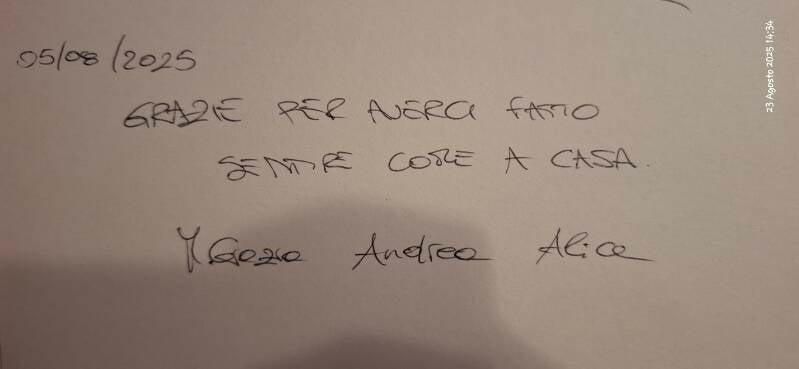 05/08/2025
GRAZIE PER AVERCI FATTO
SENTIRE COME A CASA.
Andrea Alice
23 Agosto 2025 14:34